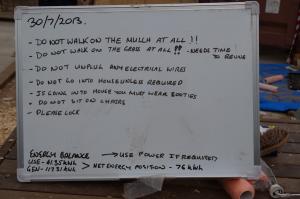 30/7/2013.
- DO NOT WALK ON THE MULCH AT ALL !!
- DO NOT WALK ON THE GRASS AT ALL !! - NEEDS TIME TO REVIVE
- DO NOT UNPLUG ANY ELECTRICAL WIRES
- DO NOT GO INTO HOUSE UNLESS REQUIRED
- IF GOING INTO HOUSE YOU MUST WEAR BOOTIES
- DO NOT SIT ON CHAIRS
- PLEASE LOCK
ENERGY BALANCE → USE POWER IF REQUIRED
USE - 41.35 kWh
GEN - 117.31 kWh > NET ENERGY POSITION - 76 kWh